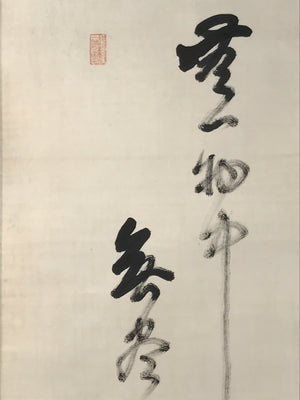 無一物中
無尽